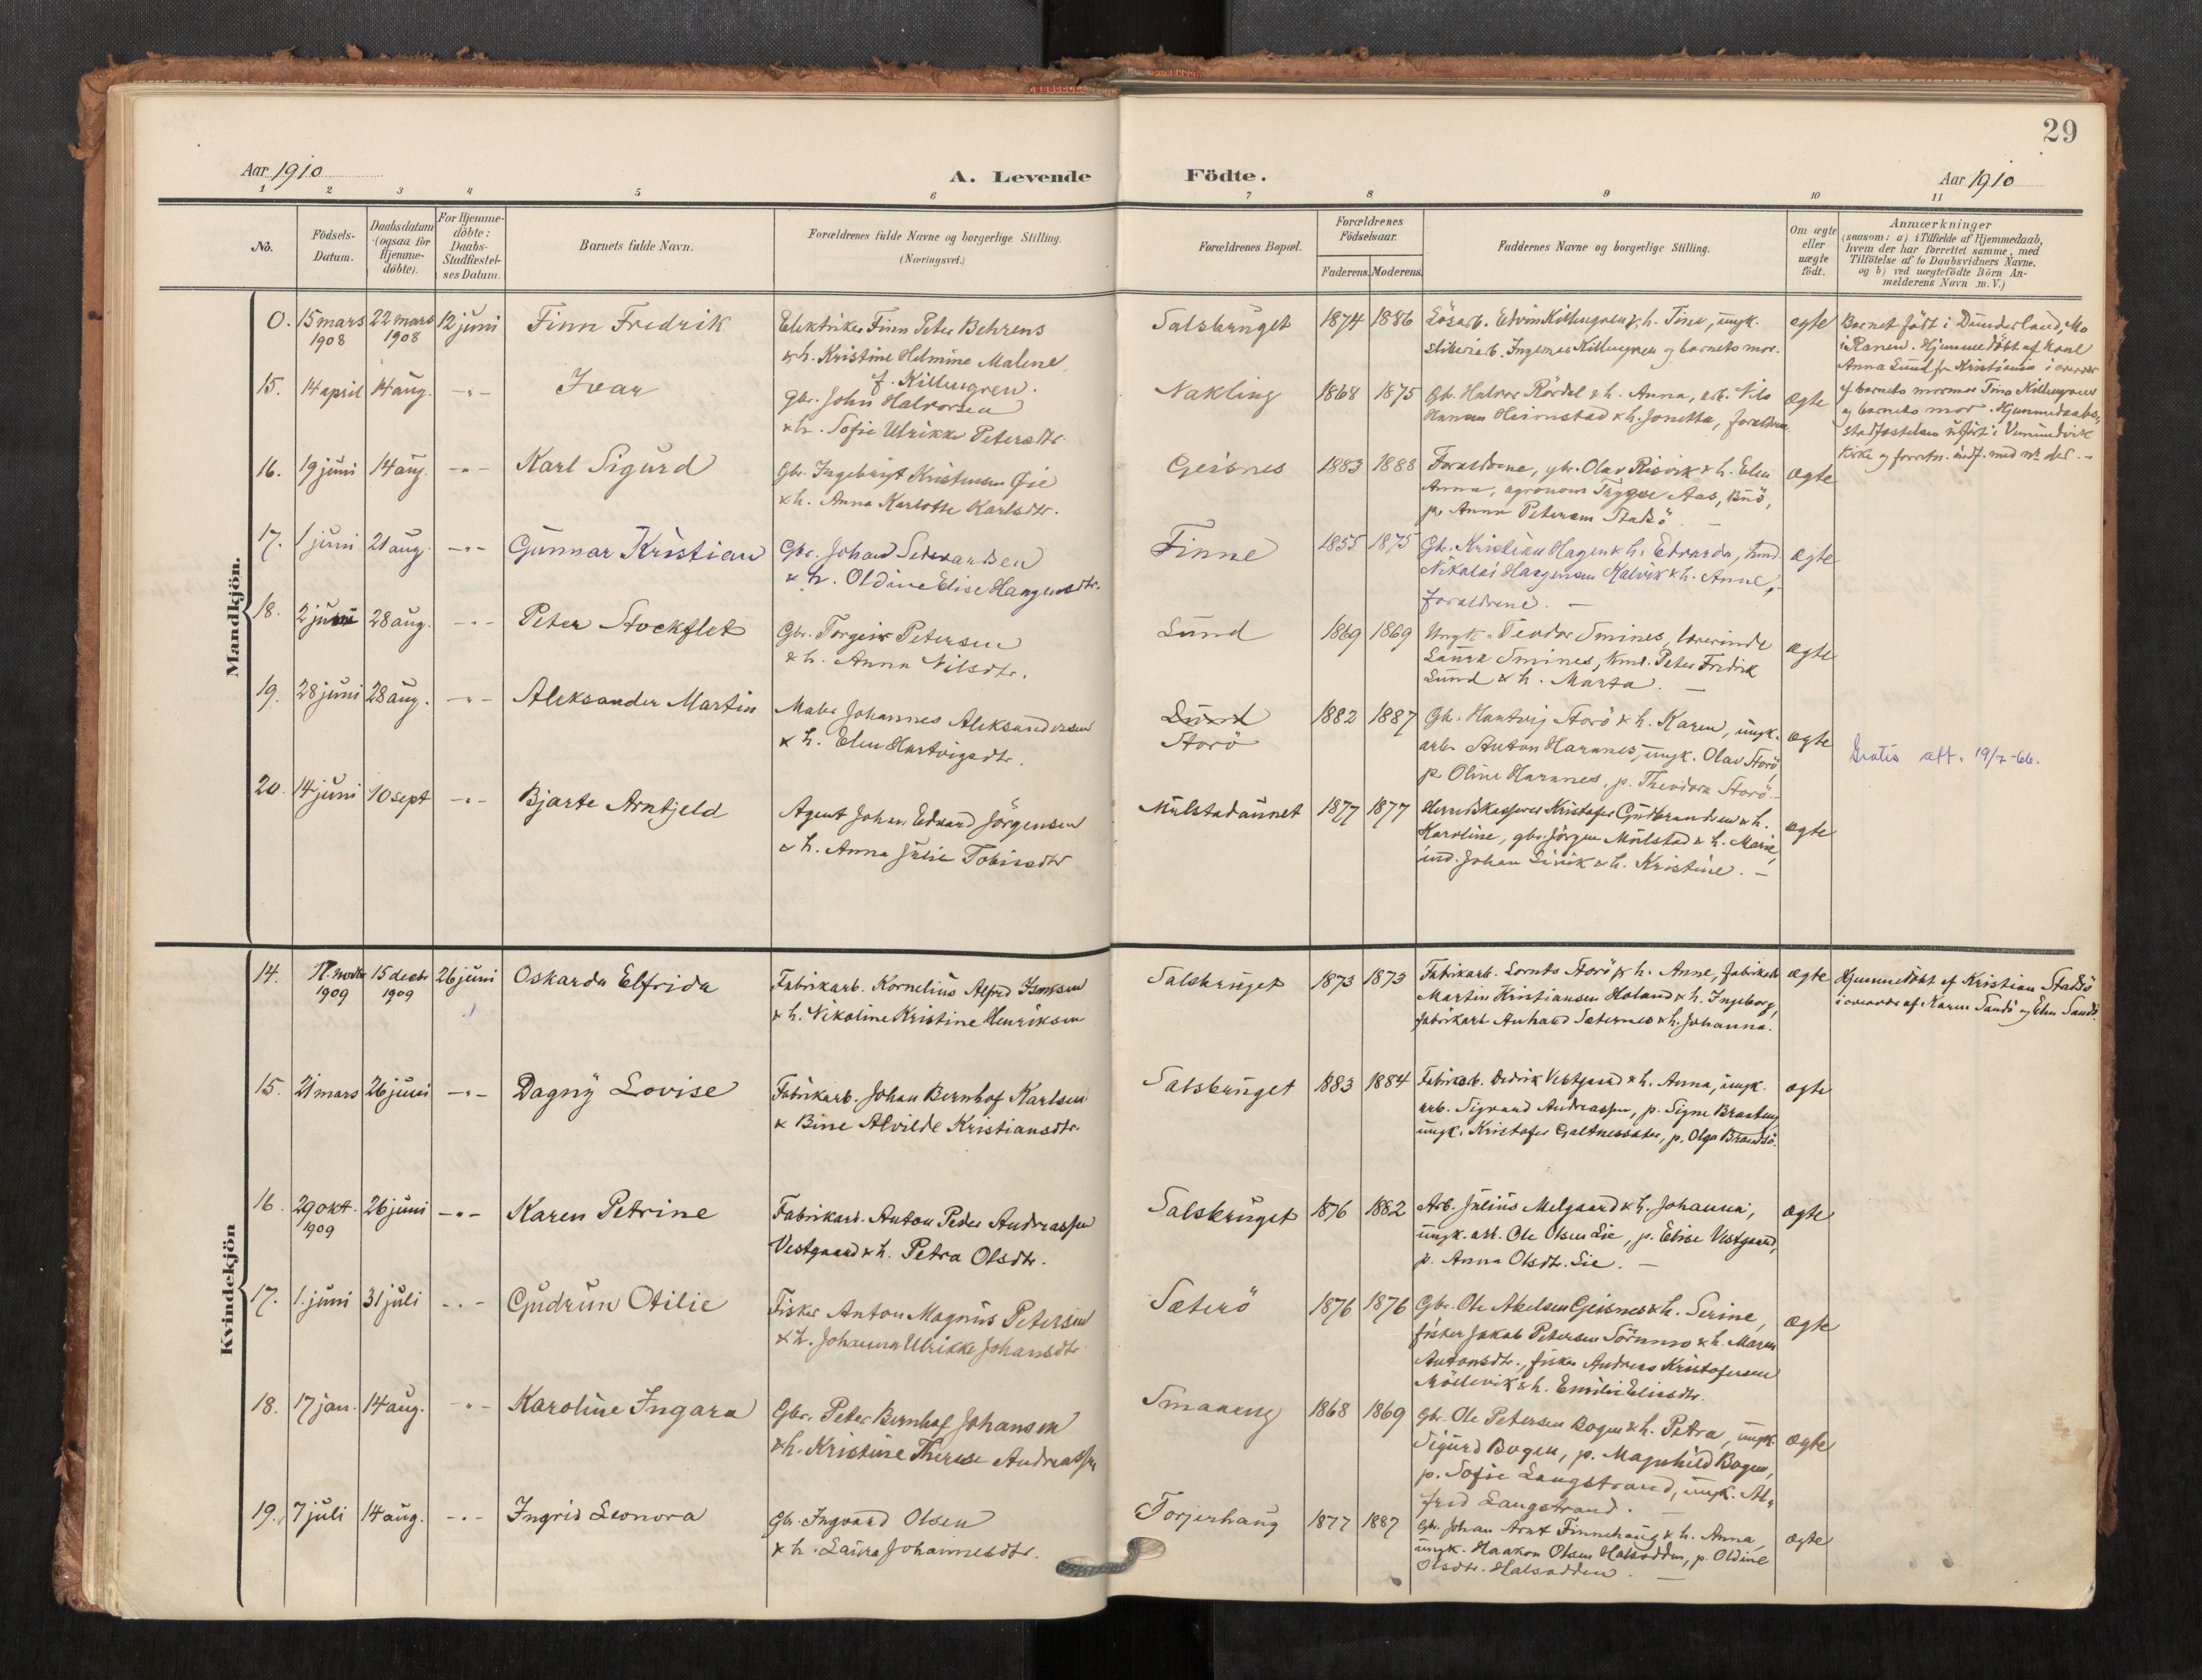 29
Aar 1910
A. Levende Födte.
Aar 1910
1 2 3 4 5 6 7 8 9 10 11
No.
Födsels-Datum.
Daabsdatum (ogsaa for Hjemme-döbte).
For Hjemme-döbte: Daabs-Stadfæstel-ses Datum.
Barnets fulde Navn.
Forældrenes fulde Navne og borgerlige Stilling.
(Næringsvei.)
Forældrenes Bopæl.
Forældrenes Födselsaar.
Faderens. Moderens.
Faddernes Navne og borgerlige Stilling.
Om ægte eller uægte födt.
Anmærkninger
(saasom: a) i Tilfælde af Hjemmedaab,
hvem der har forrettet samme, med
Tilföielse af to Daabsvidners Navne.
og b) ved uægtefödte Börn An-
melderens Navn m. V.)
Mandkjön.
0. 15 mars 1908 22 mars 1908 12 juni Finn Fredrik
Elektriker Finn Peter Behrens
& h. Kristine Helmine Malene
f. Killengren.
Salsbruget 1874 1886
Lösarb. Edvin Killengren & h. Tine, ungk.
Ingemar Killengren og barnets mor.
egte
Barnet födt i Dunderland, Mo
i Ranen. Hjemmedöbt af
Anna Lund fra Kristiania i overvær
af barnets mormor Tine Killengren
og barnets mor. Hjemmedaabs-
stadfæstelsen utfört i Vemundvik
kirke og forretn. indf. med nr der. -
15. 14 april 14 aug. -"- Ivar
Gbr. John Halvorsen
& h. Sofie Ulrikke Petersdtr.
Nakling 1868 1875
Gbr. Halvor Rördal & h. Anna, arb. Nils
Hansen Heimstad & h. Jonetta, forældrene.
ægte
16. 19 juni 14 aug. -"- Karl Sigurd
Gbr. Ingebrigt Kristensen Öie
& h. Anna Karlotte Karlsdtr.
Geisnes 1883 1888
Forældrene, gbr. Olav Risvik & h. Elen
Anna, agronom Trygve Aas, Buö,
p. Anna Petersen Stadsö. -
ægte
17. 1 juni 21 aug. -"- Gunnar Kristian
Gbr. Johan Sedvardsen
& h. Oldine Elise Haagensdtr.
Finne 1855 1875
Gbr. Kristian Hagen & h. Edvarda, kmd.
Nikolai Haagensen Kalvik & h. Anne,
forældrene. -
ægte
18. 2 juni 28 aug. -"- Peter Stockflet
Gbr. Torgeir Petersen
& h. Anna Nilsdtr.
Lund 1869 1869
Ungk. Teodor Smines, lærerinde
Laura Smines, kmd. Peter Fredrik
Lund & h. Marta. -
ægte
19. 28 juni 28 aug. -"- Aleksander Martin
Maler Johannes Aleksandersen
& h. Elen Hartvigsdtr.
Lund
Storö 1882 1887
Gbr. Hartvig Storö & h. Karen, ungk.
arb. Anton Harannes, ungk. Olav Storö,
p. Oline Harannes, p. Theodora Storö -
ægte
Gratis att. 19/7-66.
20. 14 juni 10 sept -"- Bjarte Arntfjeld
Agent Johan Edvard Jörgensen
& h. Anna Julie Tobiasdtr
Mulstadaunet 1877 1877
Herredskasserer Kristofer Gudbrandsen & h.
Karoline, gbr. Jörgen Mulstad & h. Marie,
ind. Johan Sivik & h. Kristine. -
ægte
Kvindekjön
14. 17. novbr 1909 15 decbr 1909 26 juni Oskarda Elfrida
Fabrikarb. Kornelius Alfred Isaksen
& h. Nikoline Kristine Henriksen
Salsbruget 1873 1873
Fabrikarb. Lornts Storö & h. Anne, fabrikarb
Martin Kristiansen Holand & h. Ingeborg,
fabrikarb Anhard Sæternes & h. Johanna.
ægte
Hjemmedöbt af Kristian Stadsö
i overvær af Karen Sandö og Elen Sandö.
15. 21 mars 26 juni -"- Dagny Lovise
Fabrikarb. Johan Bernhof Karlsen
& Bine Alvilde Kristiansdtr.
Salsbruget 1883 1884
Fabrikarb. Dedrik Vestgaard & h. Anna, ungk.
arb. Sigvard Andreassen, p. Signe Braateng,
ungk. Kristofer Galtnessæter, p. Olga Brandsö.
ægte
16. 29 okt. 1909 26 juni -"- Karen Petrine
Fabrikarb. Anton Peder Andreassen
Vestgaard & h. Petra Olsdtr.
Salsbruget 1876 1882
Arb. Julius Melgaard & h. Johanna,
ungk. arb. Ole Olsen Lie, p. Elise Vestgaard,
p. Anna Olsdtr. Lie. -
ægte
17. 1. juni 31 juli -"- Gudrun Otilie
Fisker Anton Magnus Petersen
& h. Johanna Ulrikke Johansdtr
Sæterö 1876 1876
Gbr. Ole Akelsen Geisnes & h. Serine,
fisker Jakob Petersen Sörnmo & h. Maren
Antonsdtr., fisker Andreas Kristofersen
Möllevik & h. Emilie Eliasdtr.
ægte
18. 17 jan. 14 aug. -"- Karoline Ingara
Gbr. Peter Bernhof Johansen
& h. Kristine Therese Andreassen
Smaaeng 1868 1869
Gbr. Ole Petersen Bogen & h. Petra, ungk.
Sigurd Bogen, p. Magnhild Bogen,
p. Sofie Langstrand, ungk. Al-
fred Langstrand. -
ægte
19. 7 juli 14 aug. -"- Ingrid Leonora
Gbr. Ingvard Olsen
& h. Laura Johannesdtr.
Torjerhaug 1877 1887
Gbr. Johan Arnt Finnehaug & h. Anna,
ungk. Haakon Olsen Halsodden, p. Oldine
Olsdtr. Halsodden. -
ægte